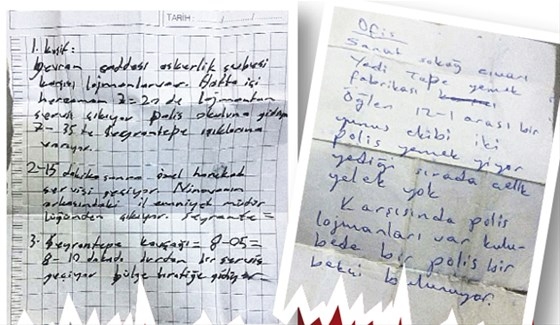 TARİH:
1. keşif:
Gevran caddesi askerlik şubesi
karşısı lojmanları var. Hafta içi
her zaman 7=20 de lojmandan
servis çıkıyor polis okuluna gidiyor
7-35 te Seyrantepe ışıklarına
varıyor.
2-15 dakika sonra özel harekad
servisi geçiyor.
arkasındaki il emniyet müdür
lüğünden çıkıyor. Seyrante=
3. Seyrantepe kavşağı= 8-05=
8-10 da bir servis
geçiyor bölge gidiyor
Ofis
Sanat sokağ civarı
Yedi Tepe yemek
fabrikası
Öğlen 12-1 arası bir
yunus ekibi iki
polis yemek yiyor
yediği sırada çelik
yelek yok
Karşısında polis
lojmanları var kulu-
bede bir polis bir
bekçi bulunuyor.